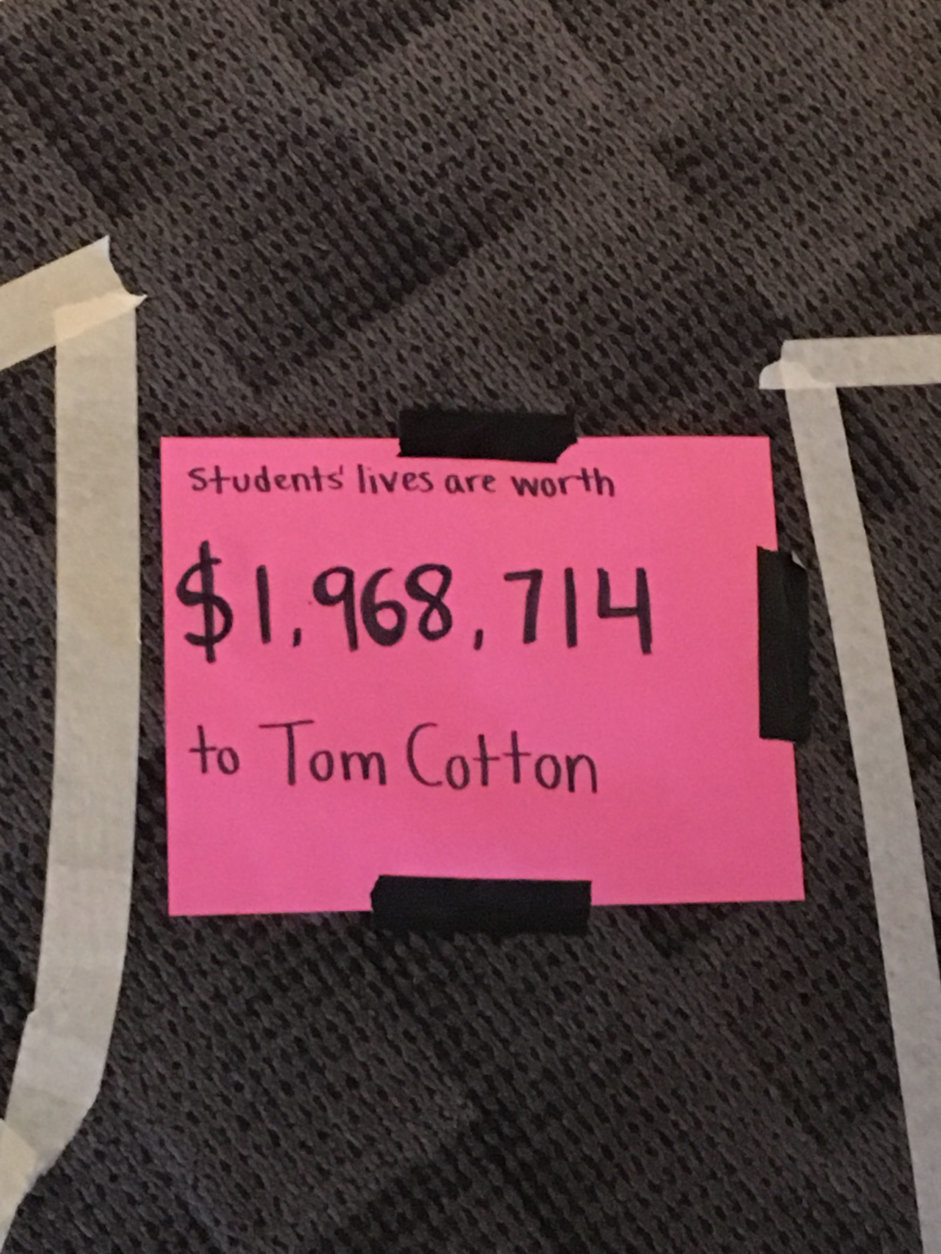 Students' lives are worth
$1,968,714
to Tom Cotton